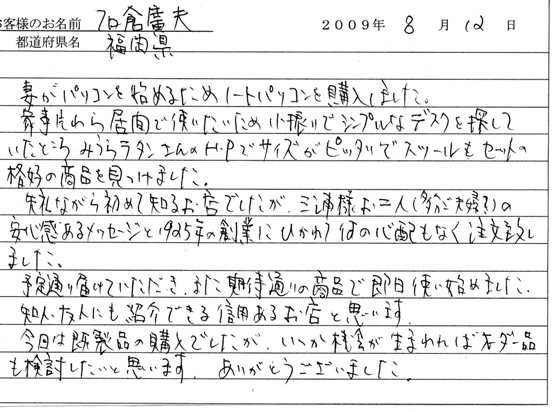 お客様のお名前 倉廣夫 2009年 8 月 12 日
都道府県名 福岡県
妻がパソコンを始めるためノートパソコンを購入しました。
家事片わら居間で使いたいため小振りでシンプルなデスクを探して
いたところ みうらラタンさんのH・Pでサイズがピッタリでスツールもセットの
格好の商品を見つけました。
失礼ながら初めて知るお店でしたが、三浦様お二人(多分ご夫婦?)の
安心感あるメッセージと1925年の創業にひかれて何の心配もなく注文致し
ました。
予定通り届けていただき、また期待通りの商品で即日使い始めました。
知人・友人にも紹介できる信用あるお店と思います。
今回は既製品の購入でしたが、いつか機会が生まれればオーダー品
も検討したいと思います。 ありがとうございました。